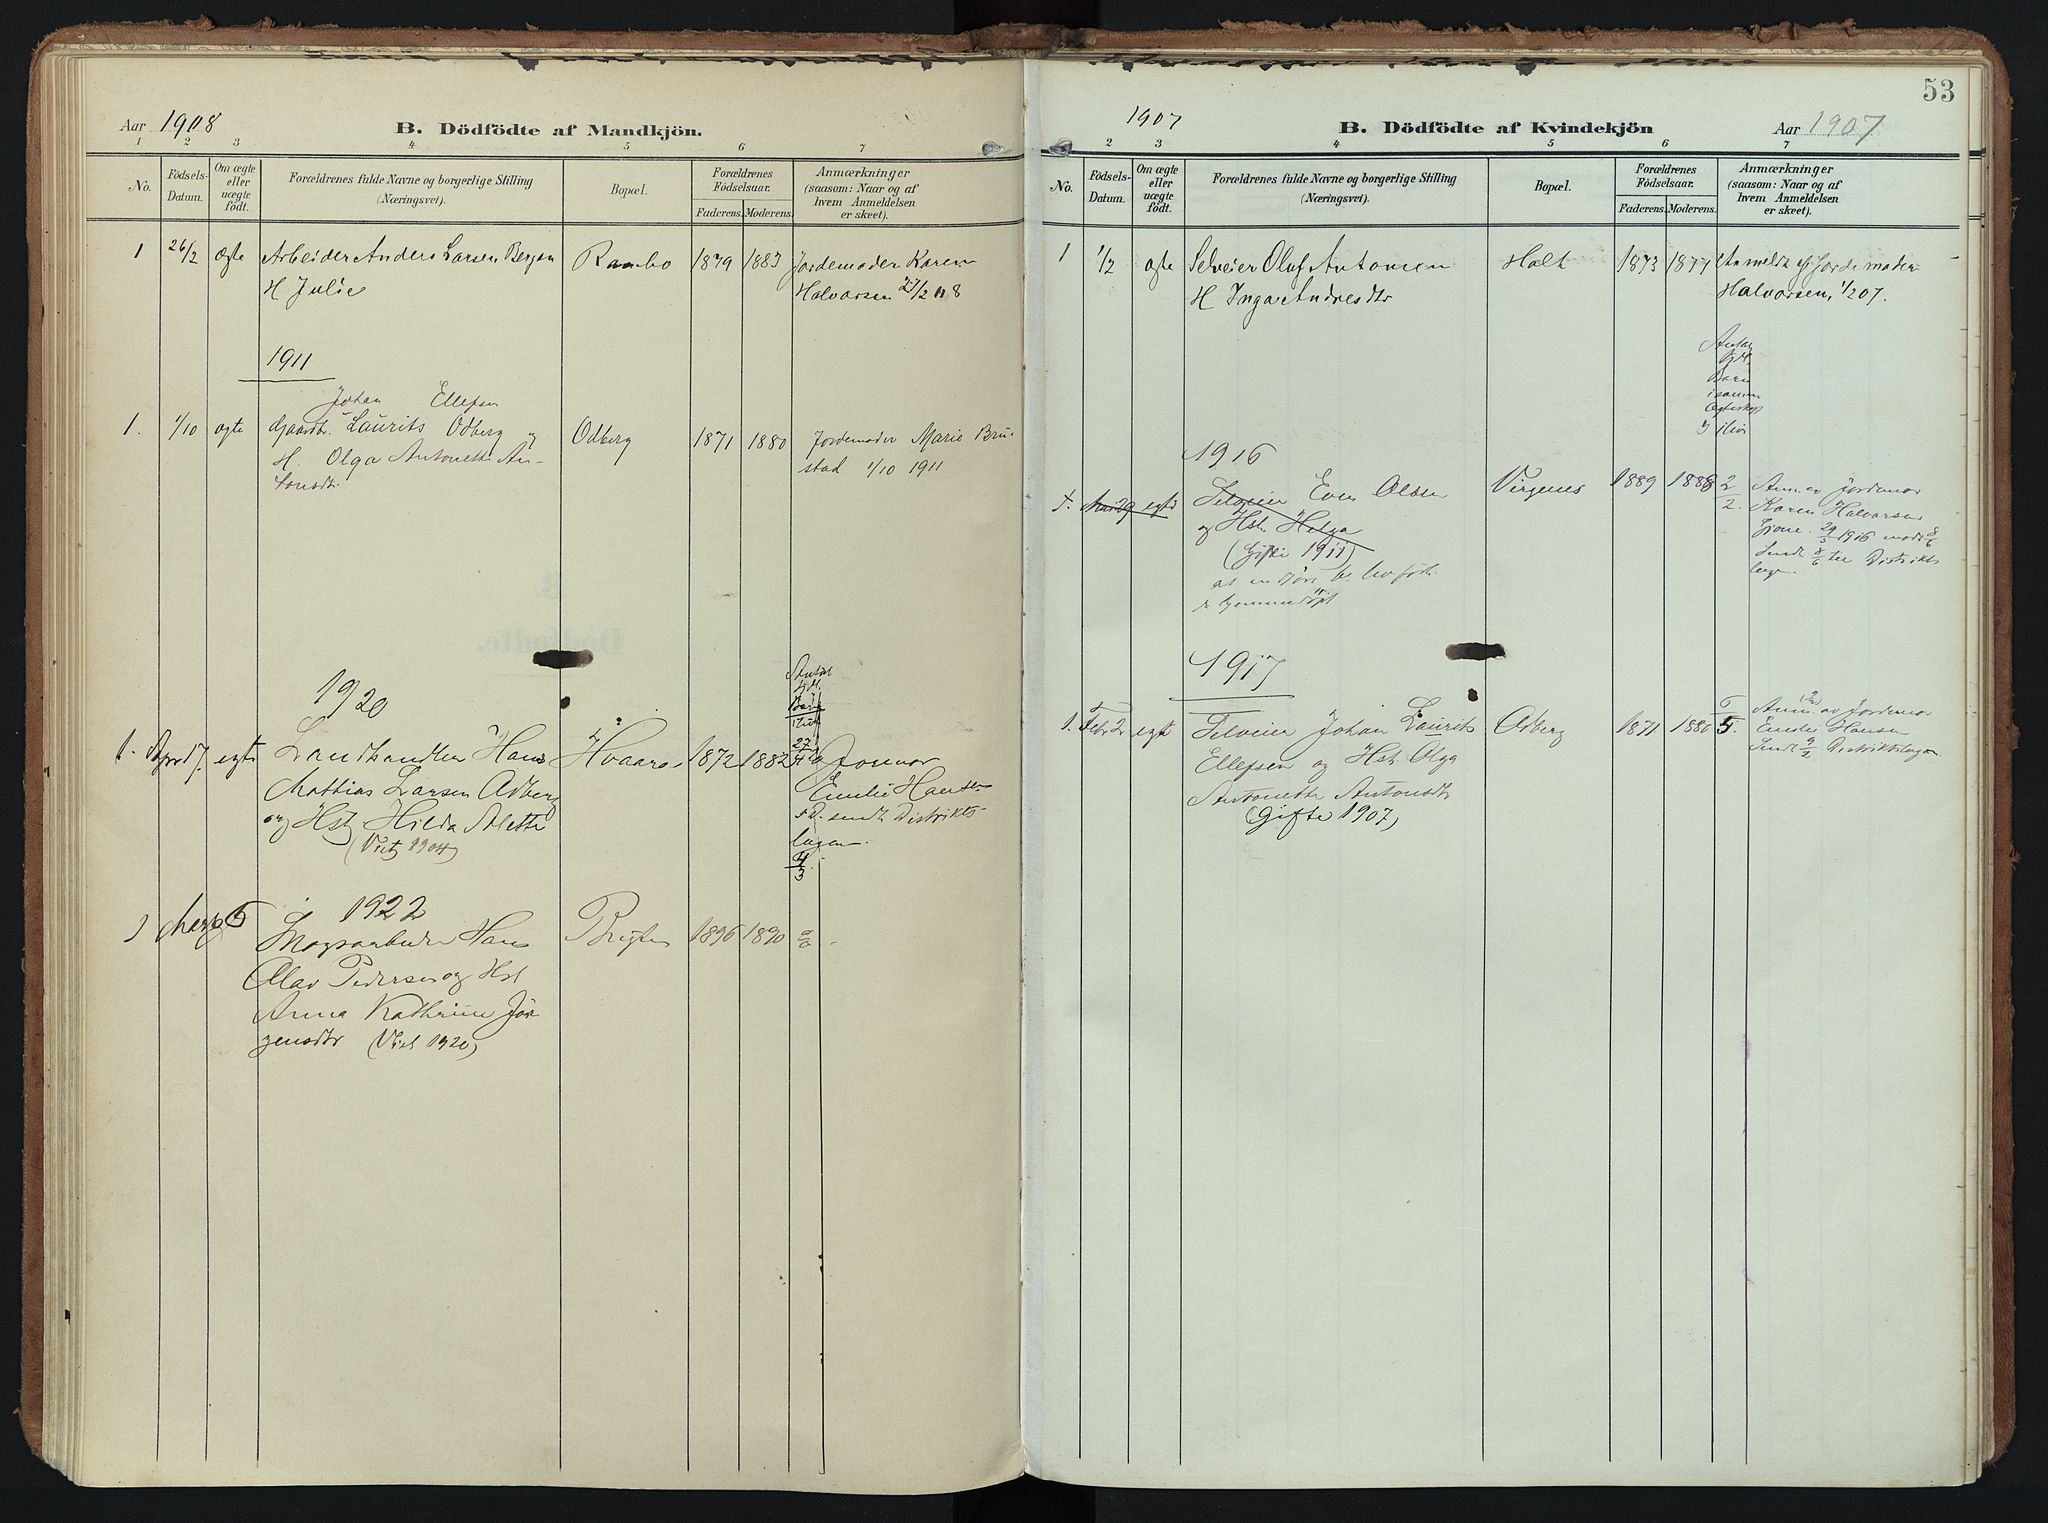 Aar 1908
B. Dödfödte af Mandkjön.
1 2 3 4 5 6 7
No.
Födsels-Datum.
Om ægte eller uægte födt.
Forældrenes fulde Navne og borgerlige Stilling (Næringsvei).
Bopæl.
Forældrenes Födselsaar.
Faderens. Moderens.
Anmærkninger (saasom: Naar og af hvem Anmeldelsen er skeet).
1 26/2 ægte Arbeider Anders Larsen Bergan Rambo 1879 1883 Jordemoder Karen
H Julie Halvorsen 27/2 08
1911
Johan Ellefsen
1. 1/10 ægte Gaardbr. Laurits Odberg og Odberg 1871 1880 Jordemoder Marie Bru-
H. Olga Antonette An- stad 1/10 1911
tonsdtr.
1920
1. April 7. egte Landhandler Hans Hvaara 1872 1882 Jormor
Mathias Larsen Odberg Emilie Hansen
og Hst Hilda Alette sendt Distrikts-
(Viet 1904) lægen
4/3
1922
1 5 Hans 1896 1890
Olav Pedersen og Hst
Anna Kathrine Jör
gensdtr (Viet 1920)
53
1907
B. Dödfödte af Kvindekjön
Aar 1907
2 3 4 5 6 7
No.
Födsels-Datum.
Om ægte eller uægte födt.
Forældrenes fulde Navne og borgerlige Stilling (Næringsvei).
Bopæl.
Forældrenes Födselsaar.
Faderens. Moderens.
Anmærkninger (saasom: Naar og af hvem Anmeldelsen er skeet).
1 1/2 ægte Selveier Oluf Antonsen Holt 1873 1877 Anmeldt af Jordemoder
H Inga Andresdtr Halvorsen, 1/2 07.
Antal
Barn
1916
Mai 29 egte Selveier Even Olsen 1889 1888 2/2 Anm av Jordemor
og Hst. Helga Karen Halvorsen
(Gifte 1911) 29/5 1916 8/6
Sendt 8/6 til Distrikts
hjemmedöpt lægen.
1917
1. Febr 2 egte Selveier Johan Laurits Odberg 1871 1880 6/5 Anm av Jordemor
Ellefsen og Hst. Olga Emilie Hansen
Antonette Antonsdtr Sendt 9/2 Distriktslægen
(Gifte 1907)